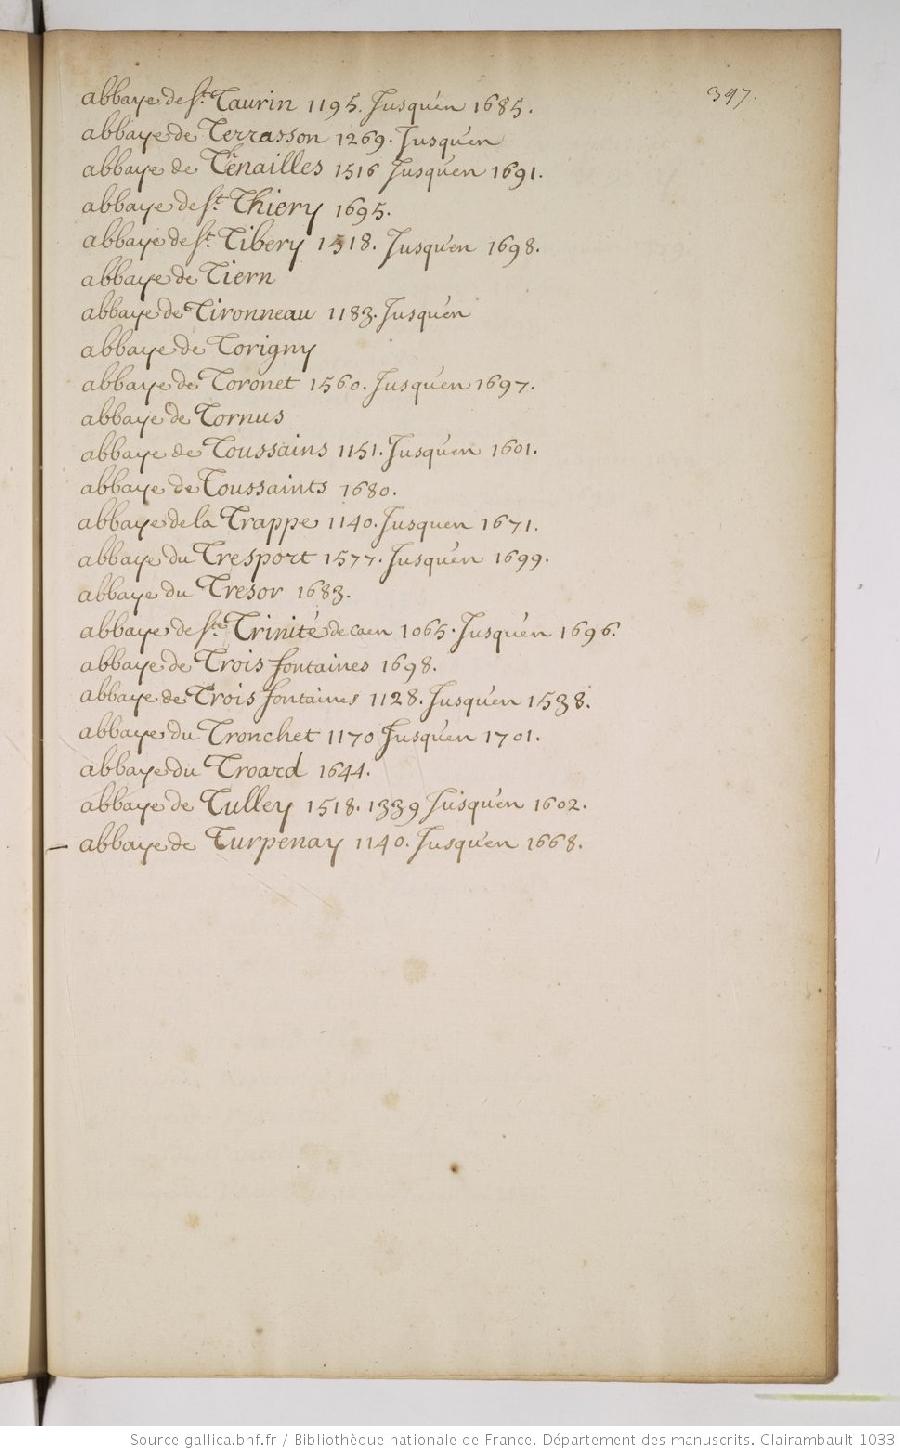 397.
abbaye de St. Taurin 1195. Jusqu'en 1685.
abbaye de Terrasson 1269. Jusquen
abbaye de Tenailles 1516 Jusqu'en 1691.
abbaye de St. Thiery 1695.
abbaye de St. Tibery 1518. Jusqu'en 1698.
abbaye de Tiern
abbaye de Tironneau 1183. Jusqu'en
abbaye de Torigny
abbaye de Toronet 1560. Jusqu'en 1697.
abbaye de Tornus
abbaye de Toussains 1151. Jusqu'en 1601.
abbaye de Toussaints 1680.
abbaye de la Trappe 1140. Jusquen 1671.
abbaye du Tresport 1577. Jusqu'en 1699.
abbaye du Tresor 1683.
abbaye de Ste. Trinité de Caen 1065. Jusqu'en 1696.
abbaye de Trois fontaines 1698.
abbaye de Trois fontaines 1128. Jusqu'en 1538.
abbaye du Tronchet 1170 Jusqu'en 1701.
abbaye du Troard 1644.
abbaye de Tulley 1518. 1339 Jusqu'en 1602.
abbaye de Turpenay 1140. Jusqu'en 1668.
Source gallica.bnf.fr / Bibliothèque nationale de France. Département des manuscrits. Clairambault 1033